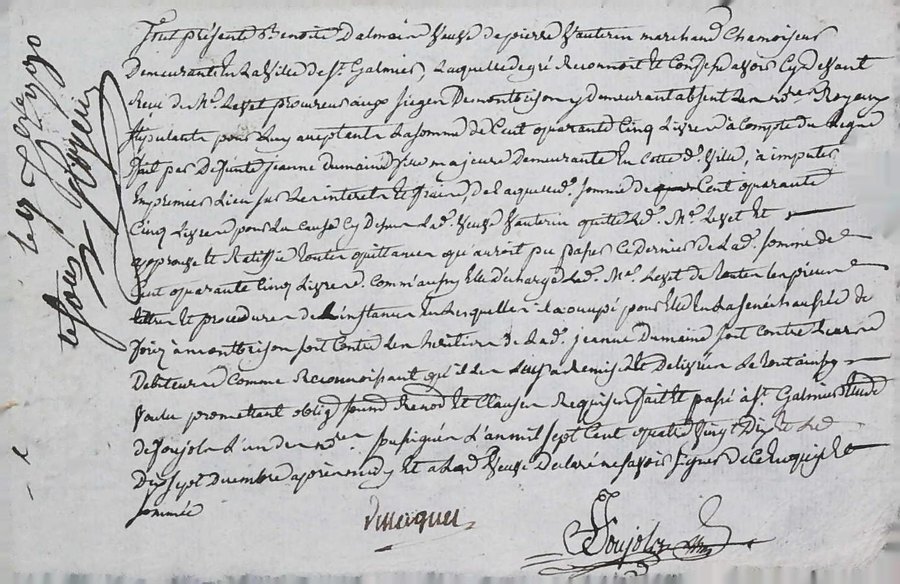 Fut présente Benoite Dalmais veuve de pierre Vauterin marchand Chamoiseur
Demeurante En La Ville de St. Galmier, Laquelle de gré Reconnoit Et Confesse avoir Cy Devant
Receu de Me. Leyet procureur aux sieges De montbrison y demeurant absent Les nores. Royaux
stipulants pour Luy acceptants La somme de Cent quarante Cinq Livres à Compte du
fait par Defunte Jeanne Dumaine fille majeure Demeurante En Cette d. Ville, à imputer
En premier Lieu sur Les interets Et fraix, de Laquelle d. somme de Cent quarante
Cinq Livres pour La Cause Cy Dessus La d. Veuve Vauterin quitte Led. Me. Leyet Et
approuve Et Ratiffie Toutes quittances qu'auroit pu passer Ce Dernier de La d. somme de
Cent quarante Cinq Livres. Comm'aussy Elle décharge Led. Me. Leyet de Toutes Les pieces
titres Et procedures de L'instance En Lesquelles il a occupé pour Elle En La senechaussée de
forez à montbrison soit Contre Les heritiers de La d. jeanne Dumaine soit Contre Leurs
Debiteurs Comme Reconnoissant qu'il Les Luy a Remis Et Delivrés Le tout ainsy
Voulu promettant oblig. soum. Renon. Et Clauses Requises fait Et passé à St. Galmier Etude
de Soujols L'un des nores. soussignés L'an mil sept Cent quatre Vingt Dix Et Le
Dix sept Decembre après midy Et a La d. Veuve Declaré ne savoir signer de Ce Enquise Et
sommée
Soujols